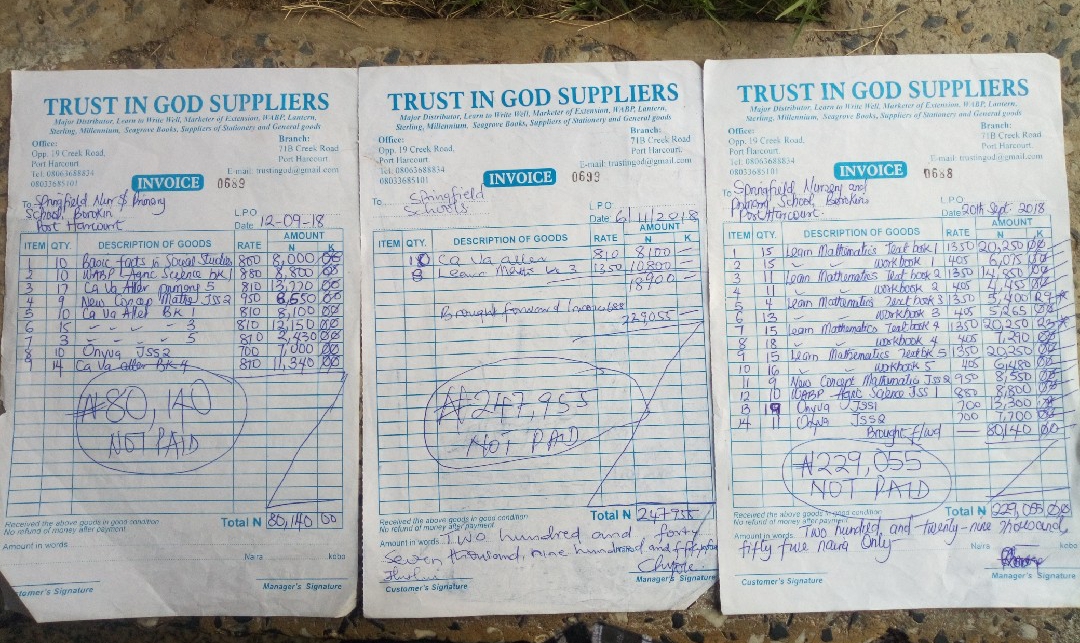 TRUST IN GOD SUPPLIERS
Major Distributor, Learn to Write Well, Marketer of Extension, WABP, Lantern,
Sterling, Millennium, Seagrove Books, Suppliers of Stationery and General goods
Office:
Opp. 19 Creek Road,
Port Harcourt
Tel: 08063688834
08033685101
Branch:
71B Creek Road
Port Harcourt.
E-mail: trustingud@gmail.com
INVOICE 0689
To Springfield Nur & Primary
School, Borokiri
Port Harcourt
L.P.O.
Date 12-09-18
ITEM QTY. DESCRIPTION OF GOODS RATE AMOUNT N K
1 10 Basic facts in Social Studies 800 8,000 00
2 10 WABP Agric Science bk 1 880 8,800 00
3 17 Ca Va Aller primary 5 810 13,770 00
4 9 New Concep Maths JSS2 950 8,550 00
5 10 Ca Va Aller Bk 1 810 8,100 00
6 15 " " " 3 810 12,150 00
7 3 " " " 5 810 2,430 00
8 10 Onyva JSS2 700 7,000 00
9 14 Ca Va aller Bk 4 810 11,340 00
₦80,140
NOT PAID
Received the above goods in good condition
No refund of money after payment
Total N 80,140 00
Amount in words
Naira kobo
Customer's Signature
Manager's Signature
TRUST IN GOD SUPPLIERS
Major Distributor, Learn to Write Well, Marketer of Extension, WABP, Lantern,
Sterling, Millennium, Seagrove Books, Suppliers of Stationery and General goods
Office:
Opp. 19 Creek Road,
Port Harcourt
Tel: 08063688834
08033685101
Branch:
71B Creek Road
Port Harcourt.
E-mail: trustingod@gmail.com
INVOICE 0699
To Springfield
Schools
L.P.O.
Date 6/11/2018
ITEM QTY. DESCRIPTION OF GOODS RATE AMOUNT N K
10 Ca Va aller 810 8100
8 Learn Maths 3 1350 10800
18900
Brought forward Invoice 688
229,055
₦247,955
NOT PAID
Received the above goods in good condition
No refund of money after payment
Total N 247955
Amount in words Two hundred and forty
Seven thousand, nine hundred and fifty five
Customer's Signature
Manager's Signature
TRUST IN GOD SUPPLIERS
Major Distributor, Learn to Write Well, Marketer of Extension, WABP, Lantern,
Sterling, Millennium, Seagrove Books, Suppliers of Stationery and General goods
Office:
Opp. 19 Creek Road,
Port Harcourt
Tel: 08063688834
08033685101
Branch:
71B Creek Road
Port Harcourt.
E-mail: trustingud@gmail.com
INVOICE 0688
To Springfield Nursery and
Primary School, Borokiri
Port Harcourt.
L.P.O.
Date 20th Sept. 2018
ITEM QTY. DESCRIPTION OF GOODS RATE AMOUNT N K
1 15 Learn Mathematics Text book 1 1350 20,250 00
2 15 " workbook 1 405 6,075 00
3 11 Learn Mathematics Text book 2 1350 14,850 00
4 11 " workbook 2 405 4,455 00
5 4 Learn Mathematics Text book 3 1350 5,400
6 13 " workbook 3 405 5,265 00
7 15 Learn Mathematics Textbook 4 1350 20,250
8 18 " workbook 4 405 7,290 00
9 15 Learn Mathematics Textbk 5 1350 20,250 00
10 16 " workbook 5 405 6,480 00
11 9 New Concept Mathematic JSS2 950 8,550 00
12 10 WABP Agric Science JSS 1 880 8,800 00
13 19 Onyva JSS1 700 13,300
14 11 Onyva JSS2 700 7,700 00
Brought f/wd 80140 00
₦229,055
NOT PAID
Received the above goods in good condition
No refund of money after payment
Total N 229,055 00
Amount in words Two hundred and twenty-nine thousand
fifty five naira Only
Naira kobo
Manager's Signature
Customer's Signature